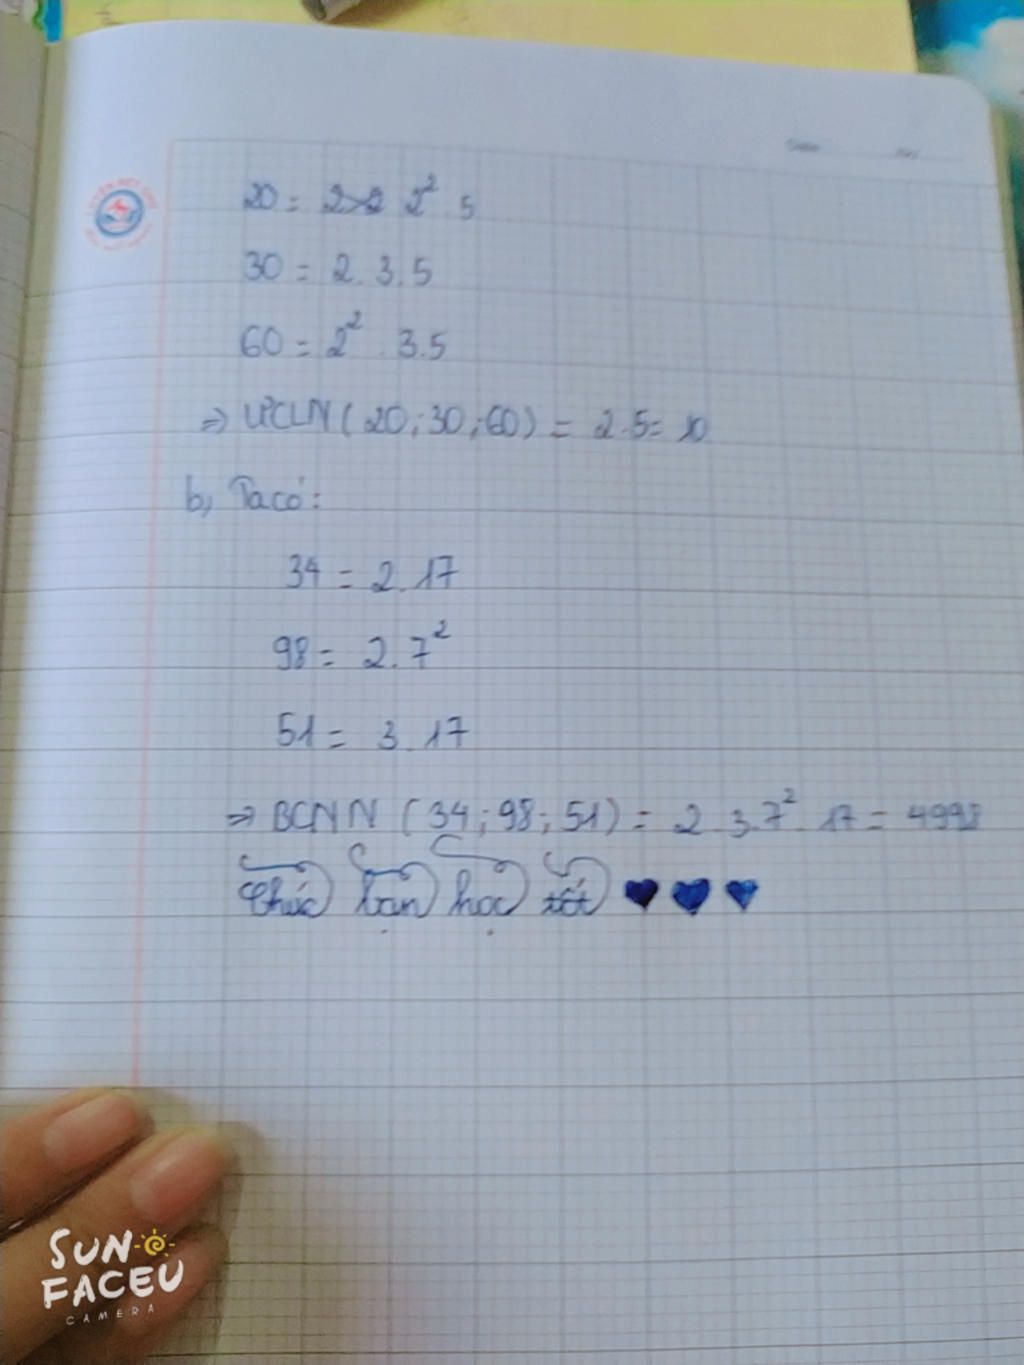 20 = 2×2 2² . 5
30 = 2 . 3 . 5
60 = 2² . 3.5
⇒ ƯCLN ( 20 ; 30 ; 60 ) = 2.5 = 10
b, Ta có :
34 = 2 . 17
98 = 2 . 7²
51 = 3 . 17
⇒ BCNN ( 34 ; 98 ; 51 ) = 2 . 3 . 7² . 17 = 4998
Chúc bạn học tốt ♥ ♥ ♥
SUN
FACEU
CAMERA